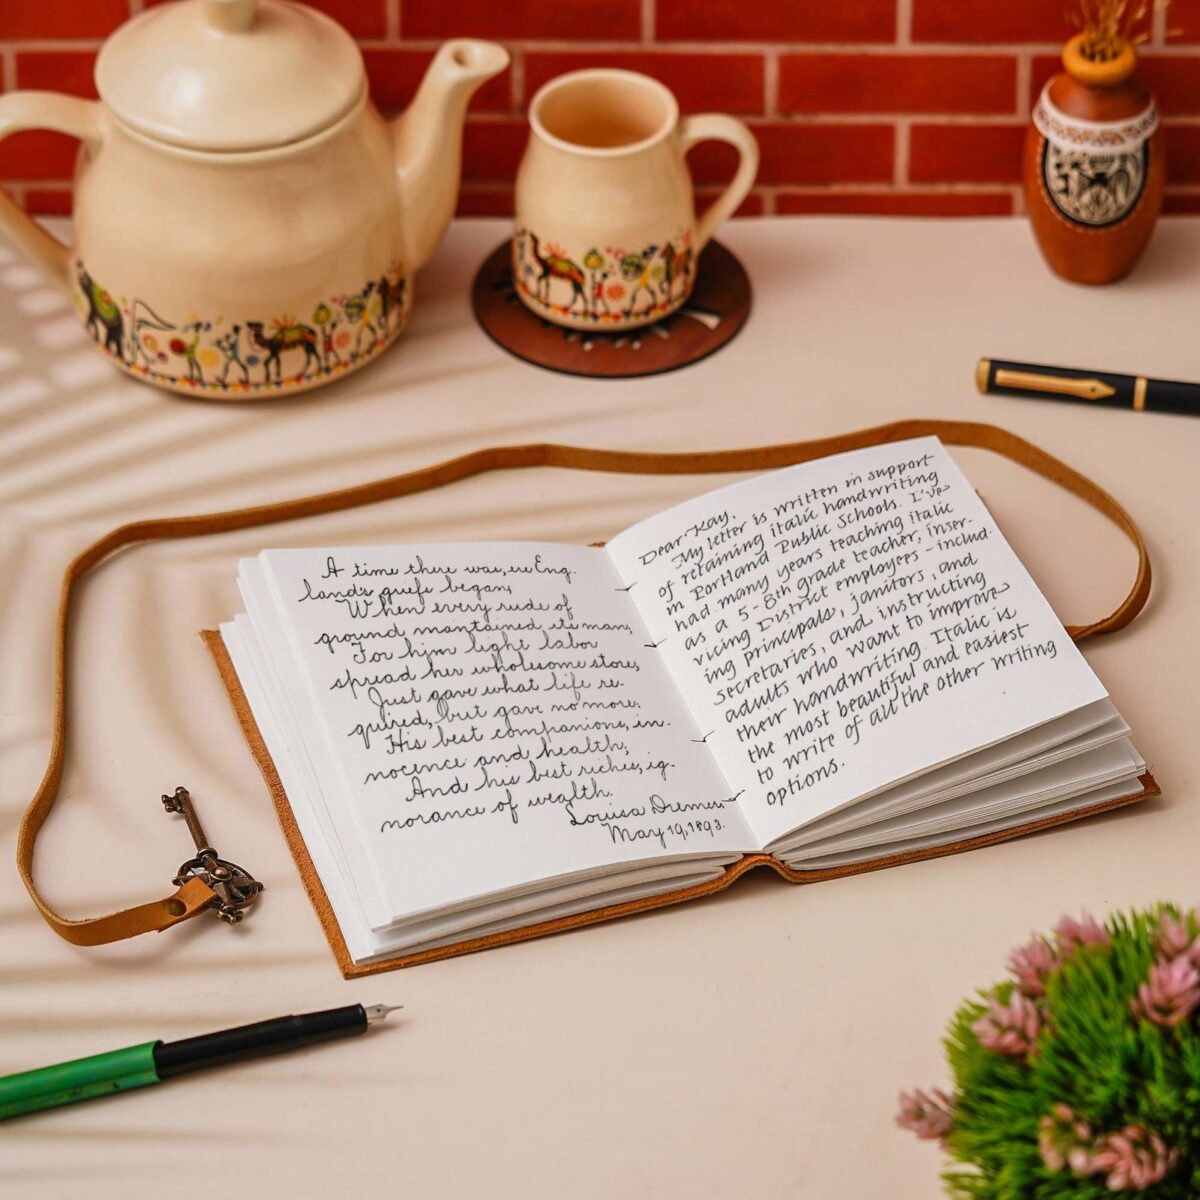 A time there was, ere Eng.
land's griefs began,
When every rude of
ground mantained its man;
For him light labor
spread her wholesome store,
Just gave what life re.
quired, but gave no more:
His best companions, in.
nocence and health;
And his best riches, ig.
norance of wealth.
Louisa
May 19, 1893.
Dear Kay,
My letter is written in support
of retaining italic handwriting
in Portland Public Schools. I've
had many years teaching italic
as a 5-8th grade teacher, inser-
vicing District employees - includ-
ing principals, janitors, and
secretaries, and instructing
adults who want to improve
their handwriting. Italic is
the most beautiful and easiest
to write of all the other writing
options.